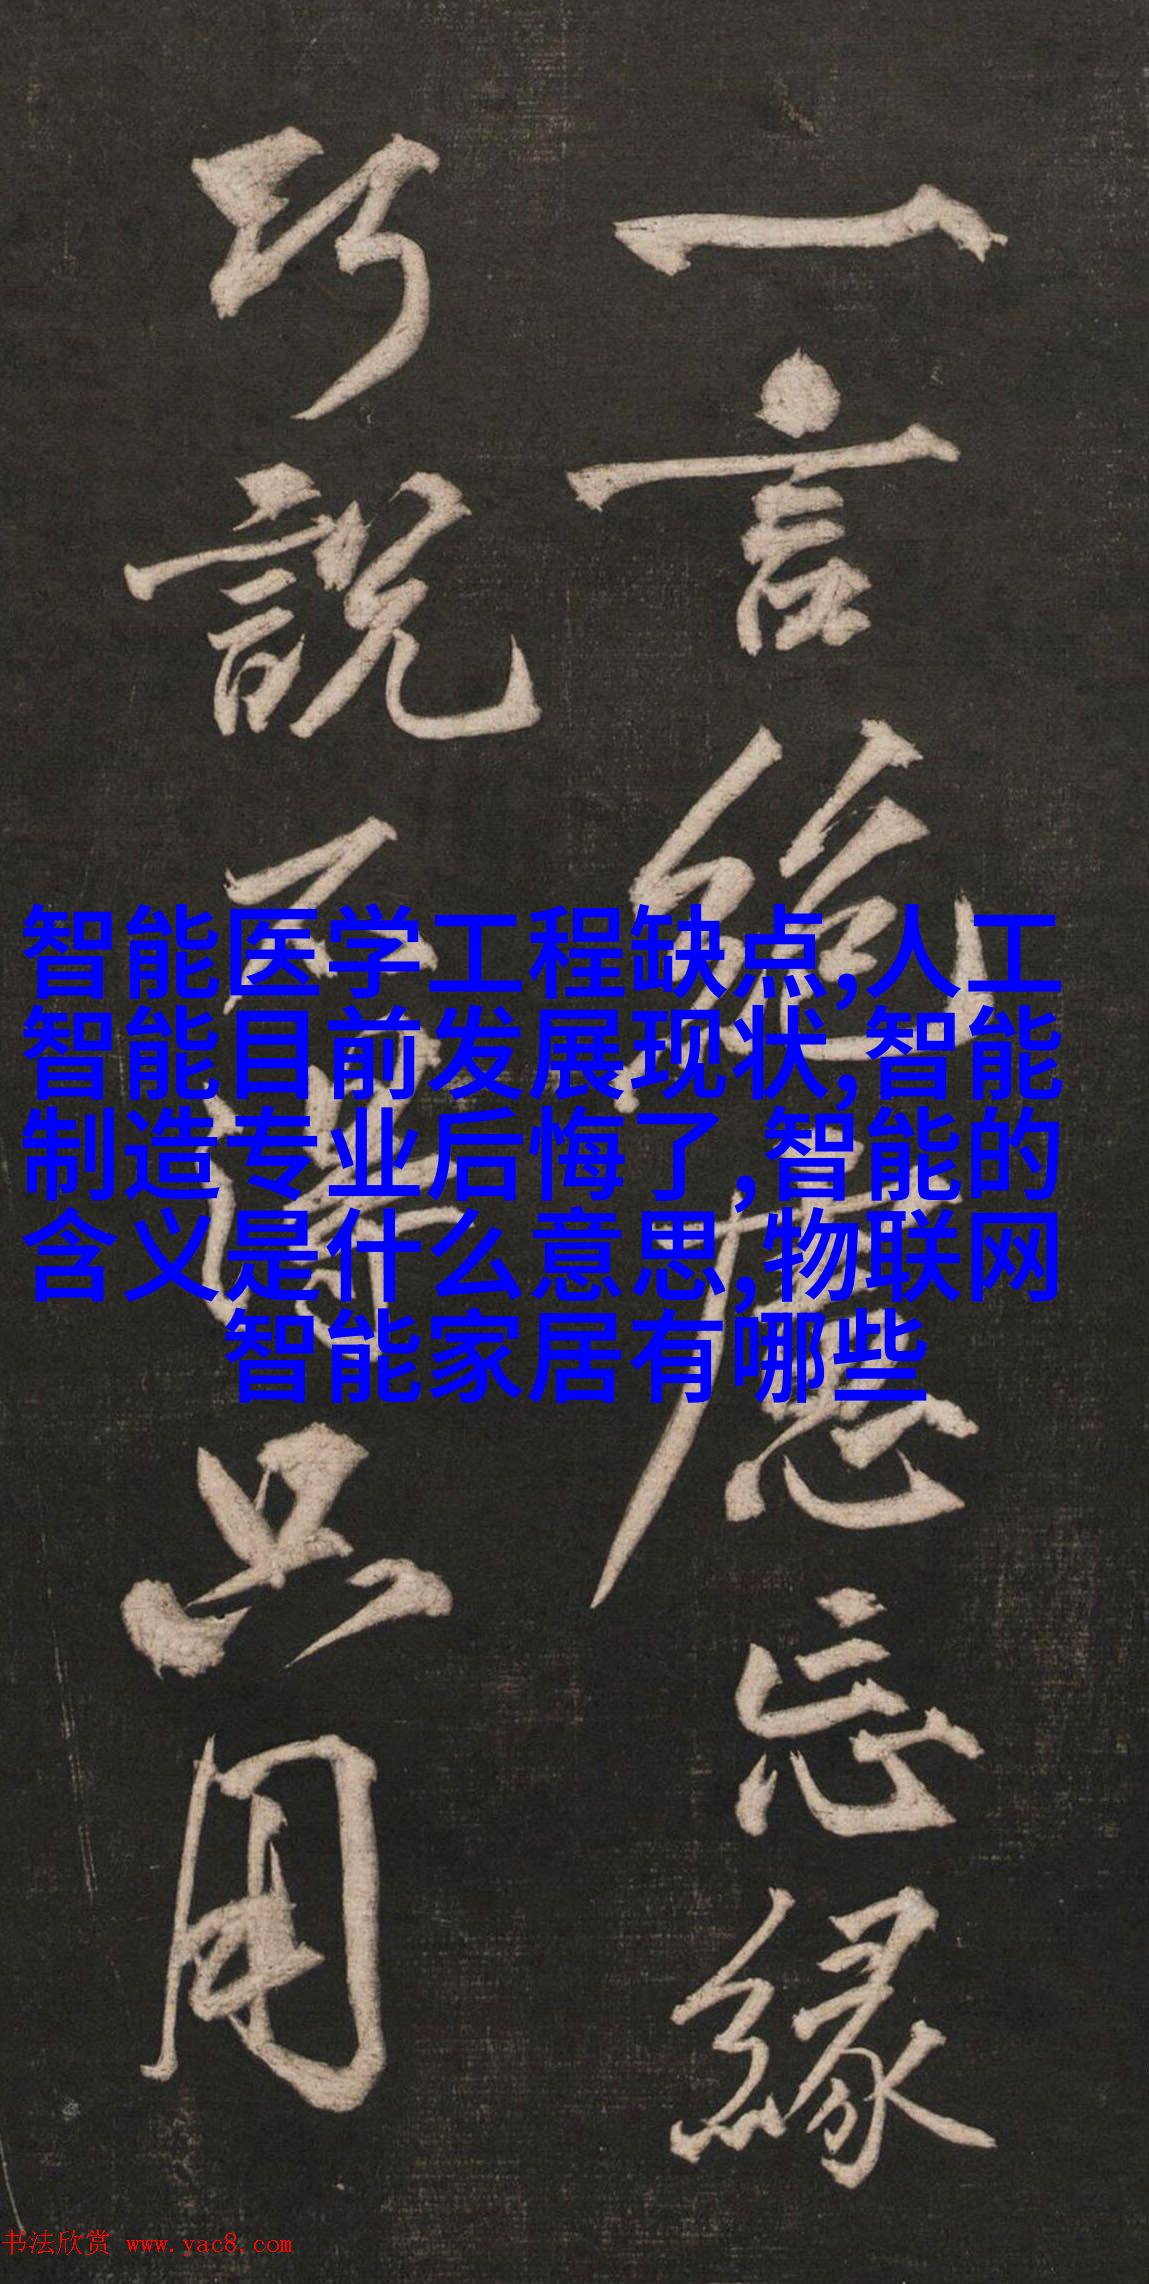 一言絶慮忘緣
巧說不得只用
智能医学工程缺点,人工
智能目前发展现状,智能
制造专业后悔了,智能的
含义是什么意思,物联网
智能家居有哪些
书法欣赏 www.yac8.com